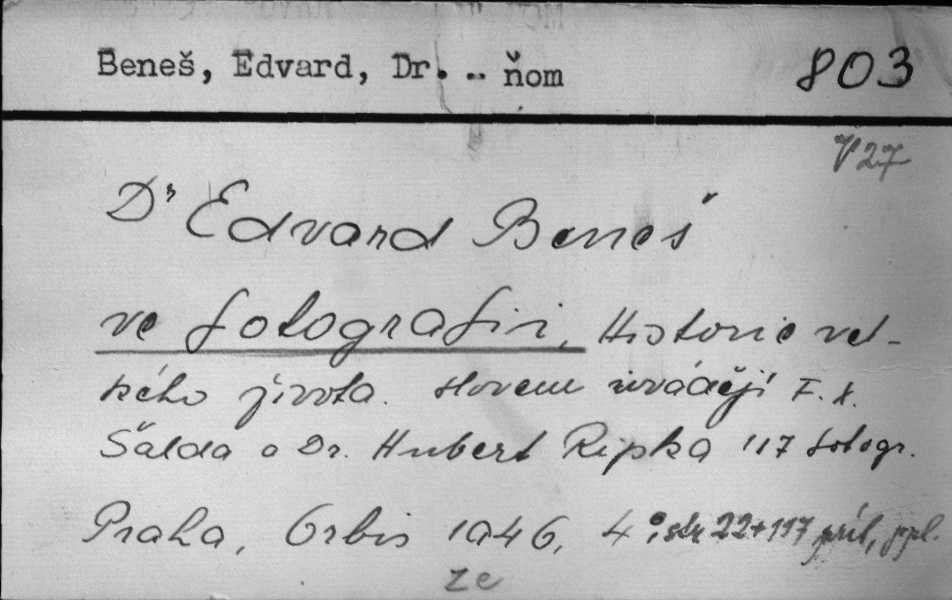 Beneš, Edvard, Dr. .. ňom 803
V27
Dr Edvard Beneš
ve fotografii, Historie vel-
kého života. Slovem uvádějí F. X.
Šalda a Dr. Hubert Ripka 117 fotogr.
Praha, Orbis 1946, 4°, str 22+117 příl,